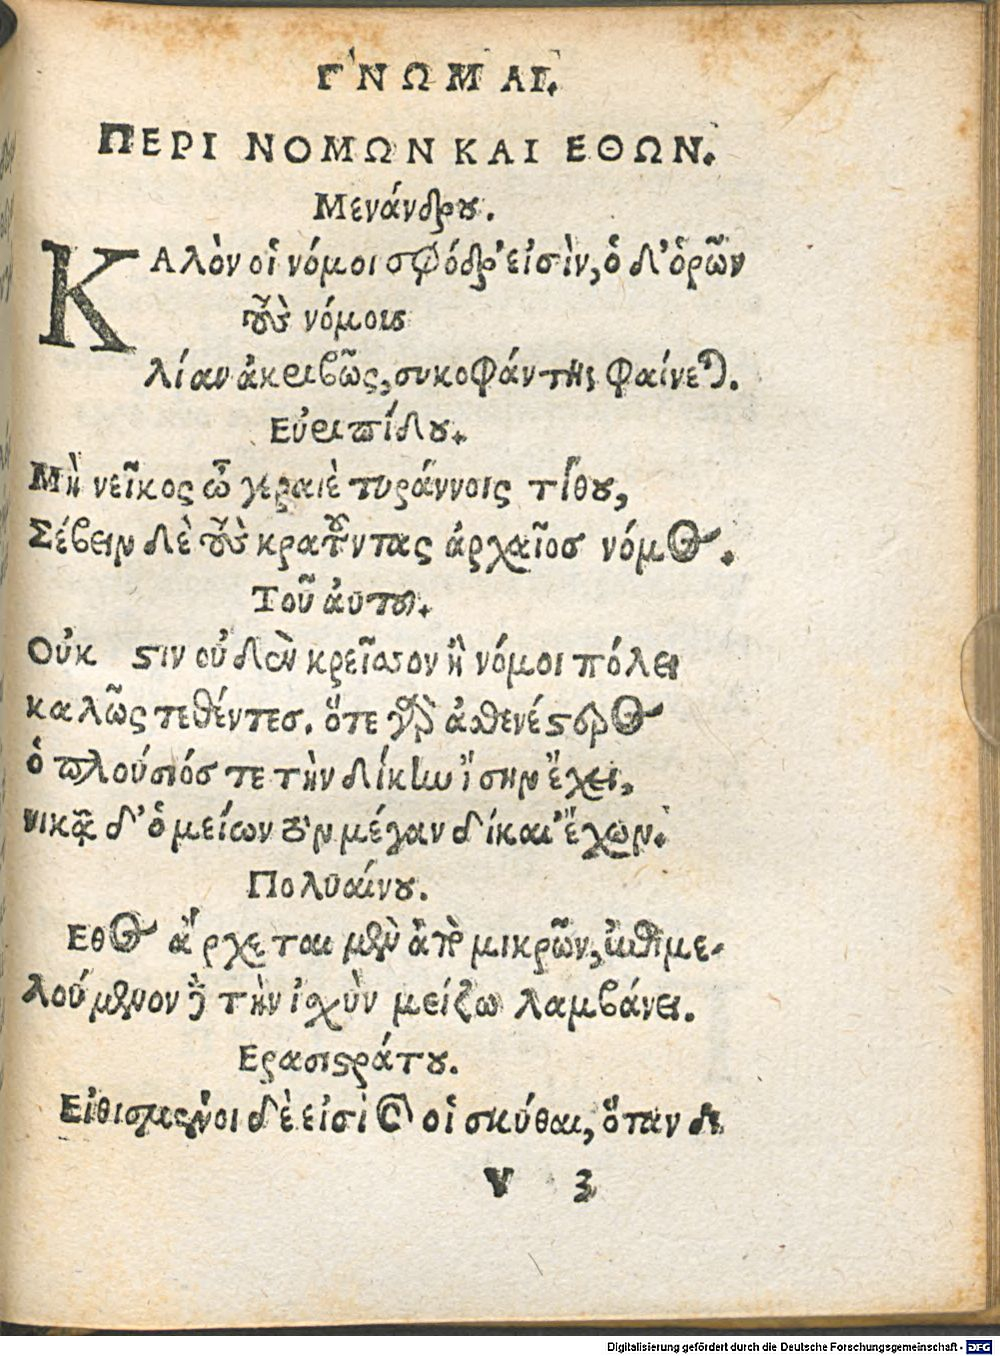 ΓΝΩΜΑΙ.
ΠΕΡΙ ΝΟΜΩΝ ΚΑΙ ΕΘΩΝ.
Μενάνδρου.
ΚΑλὸν οἱ νόμοι σφόδρ' εἰσὶν, ὁ δ' ὁρῶν
τοὺς νόμους
λίαν ἀκριβῶς, συκοφάντης φαίνεται.
Εὐριπίδου.
Μὴ νεῖκος ὦ γεραιὲ τυράννοις τίθου,
Σέβειν δὲ τοὺς κρατοῦντας ἀρχαῖος νόμος.
Τοῦ ἀυτοῦ.
Οὐκ στιν οὐδὲν κρεῖσσον ἢ νόμοι πόλει
καλῶς τεθέντες. ὅτε γὰρ ἀσθενέστερος
ὁ πλούσιός τε τὴν δίκην ἴσην ἔχει,
νικᾷ δ' ὁ μείων τὸν μέγαν δίκαι' ἔχων.
Πολυαίνου.
Εθος ἄρχεται μὲν ἀπὸ μικρῶν, ἀμελούμενον δὲ τὴν ἰσχὺν μείζω λαμβάνει.
Ερασιστράτου.
Εἰθισμένοι δὲ εἰσὶ καὶ οἱ σκύθαι, ὅταν δι
v 3
Digitalisierung gefördert durch die Deutsche Forschungsgemeinschaft - DFG